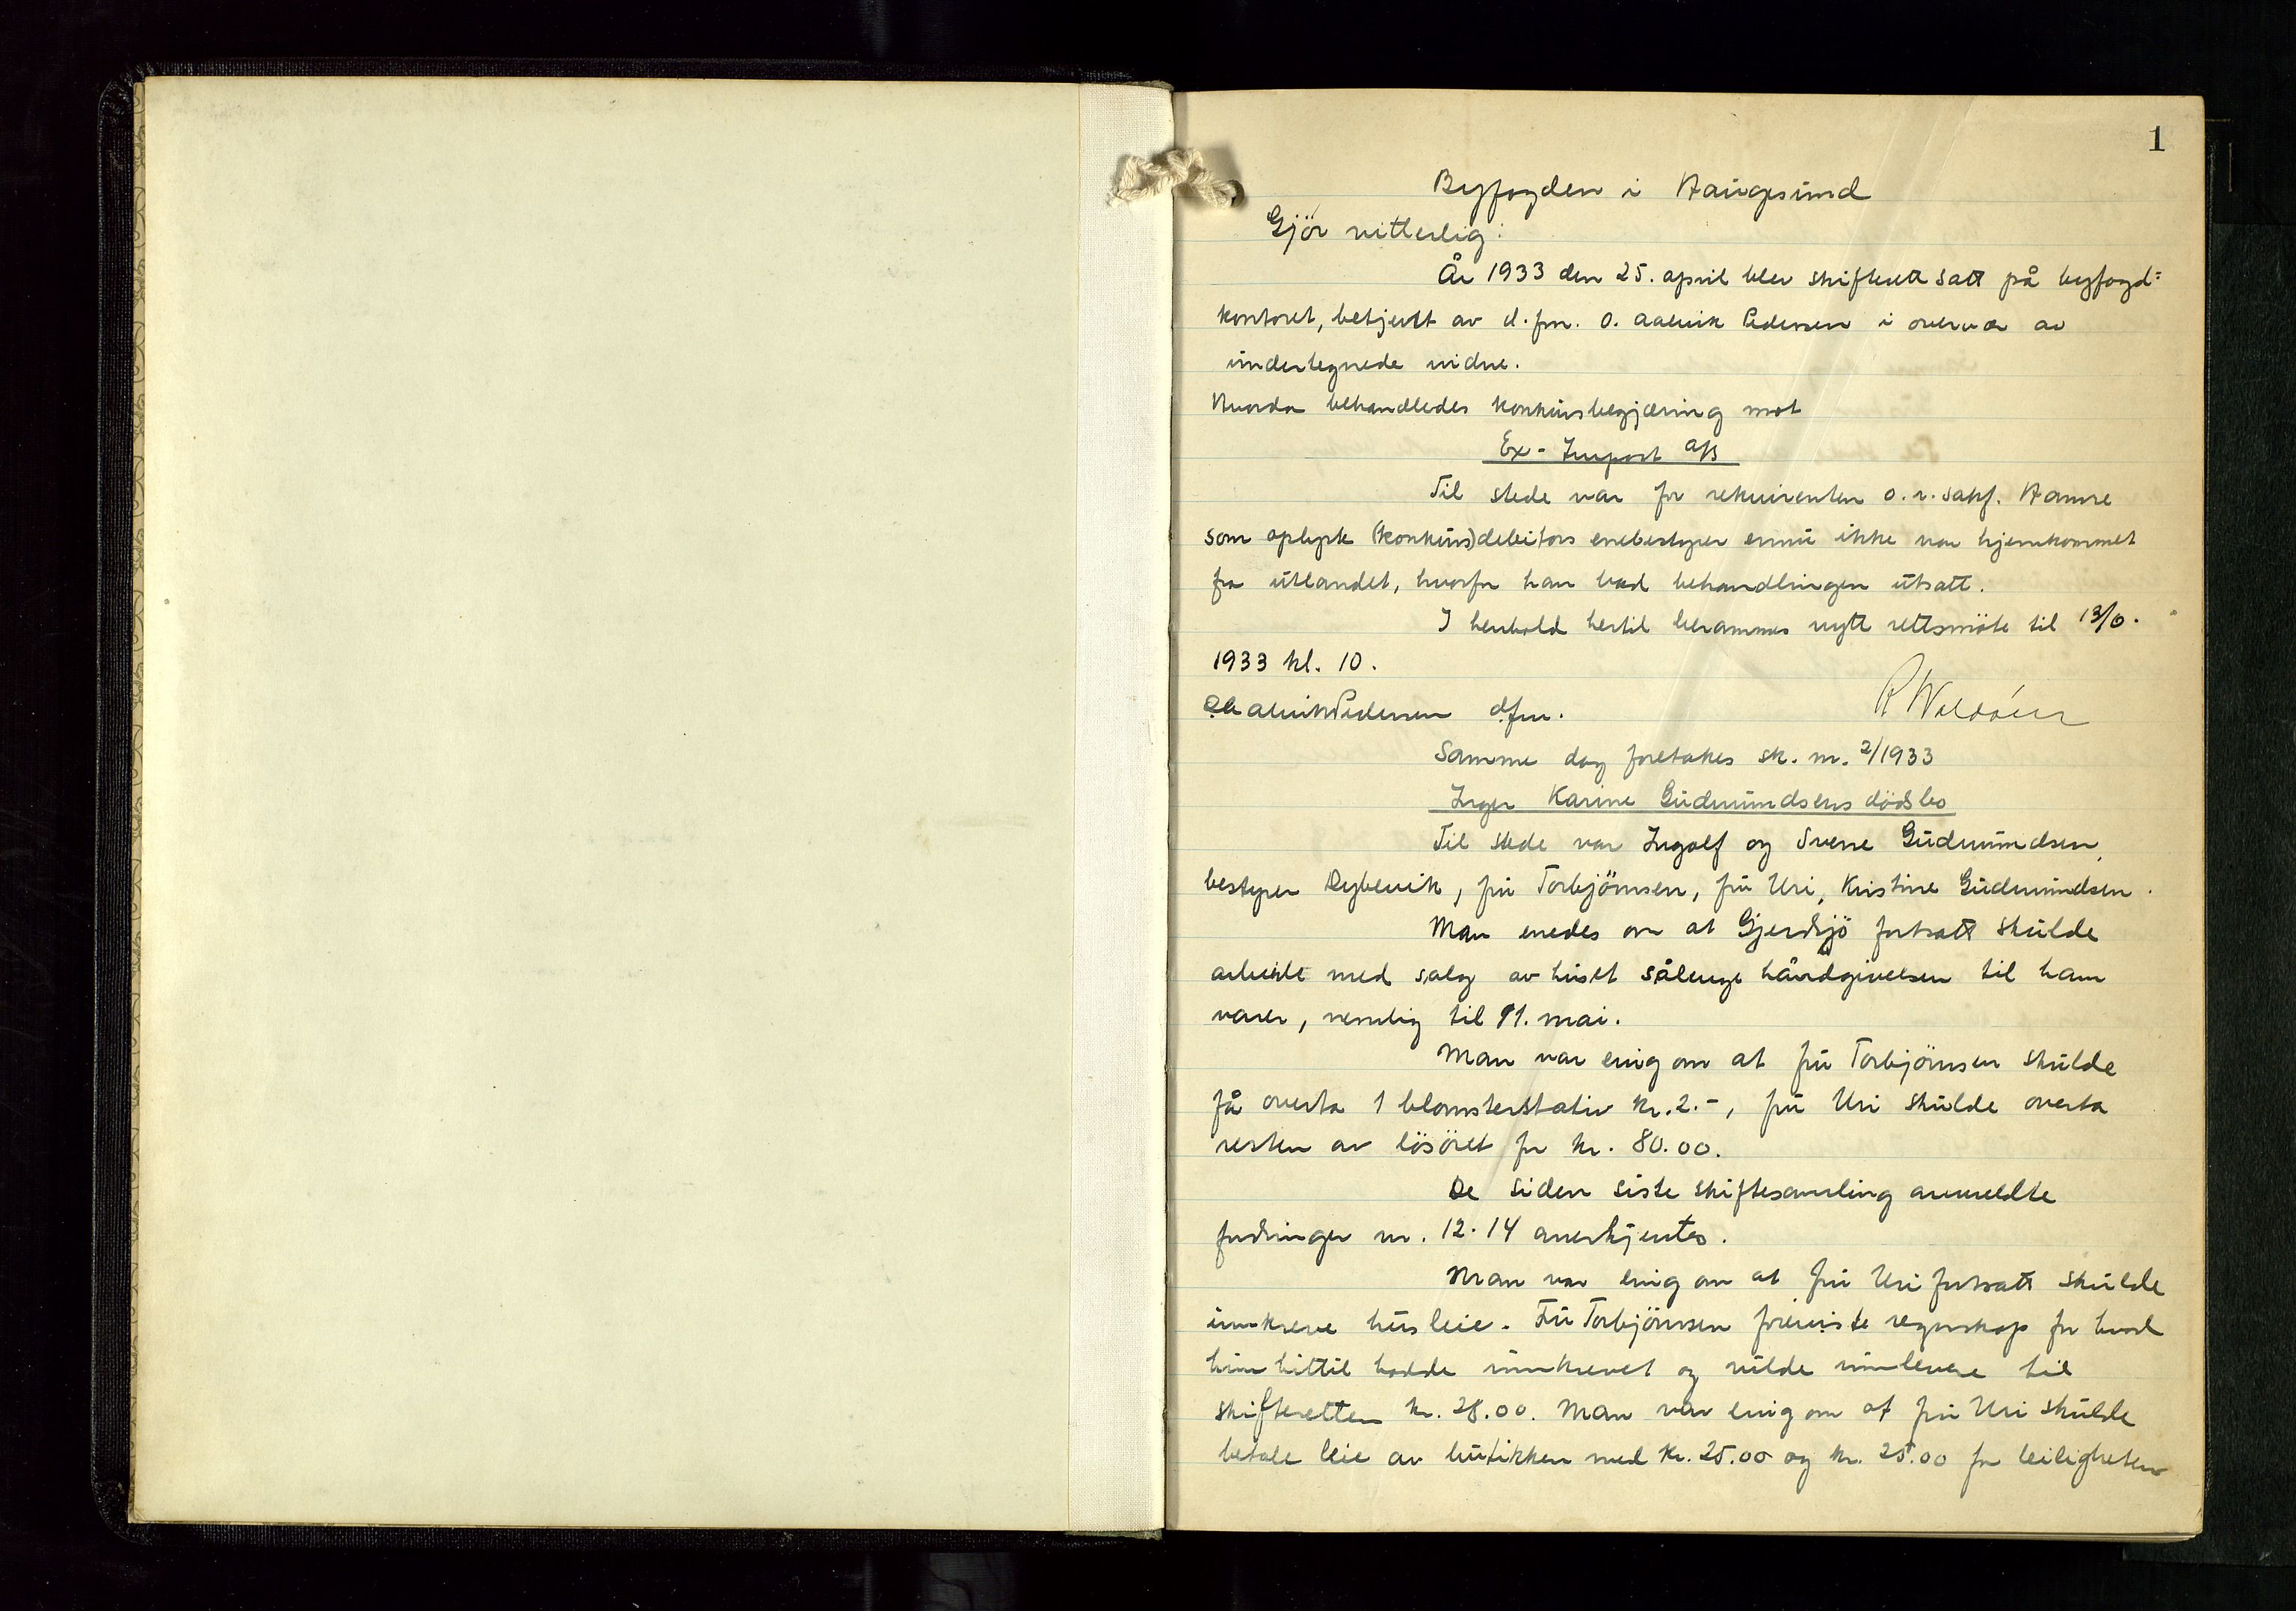 1
Byfogden i Haugesund
Gjör vitterlig:
År 1933 den 25. april blev skifterett satt på byfogd=
kontoret, betjent av d.fm. O. Aalvik Pedersen i overvær av
undertegnede vidne.
Hvorda behandledes konkursbegjæring mot
Ex-Import A/S
Til stede var for rekvirenten o.r.sakf. Hamre
som oplyste (konkurs)debitors enebestyrer ennu ikke var hjemkommet
fra utlandet, hvorfor han bad behandlingen utsatt.
I henhold hertil berammes nytt rettsmöte til 13/6.
1933 kl. 10.
O. Aalvik Pedersen dfm.
Samme dag foretakes sk. nr. 2/1933
Inger Karine Gudmundsens dödsbo
Til stede var Ingolf og Sverre Gudmundsen,
bestyrer Dybevik, fru Torbjörnsen, fru Uri, Kristine Gudmundsen.
Man enedes om at Gjerdsjö fortsatt skulde
arbeide med salg av huset sålenge håndgivelsen til ham
varer, nemlig til 11. mai.
Man var enig om at fru Torbjörnsen skulde
få overta 1 blomsterstativ kr. 2.-, fru Uri skulde overta
resten av lösöret for kr. 80.00.
De siden siste skiftesamling anmeldte
fordringer nr. 12-14 anerkjentes.
Man var enig om at fru Uri fortsatt skulde
innkreve husleie. Fru Torbjörnsen foreviste regnskap for hvad
hun hittil hadde innkrevet og vilde innlevere til
skifteretten kr. 28.00. Man var enig om at fru Uri skulde
betale leie av butikken med kr. 25.00 og kr. 25.00 for leiligheten